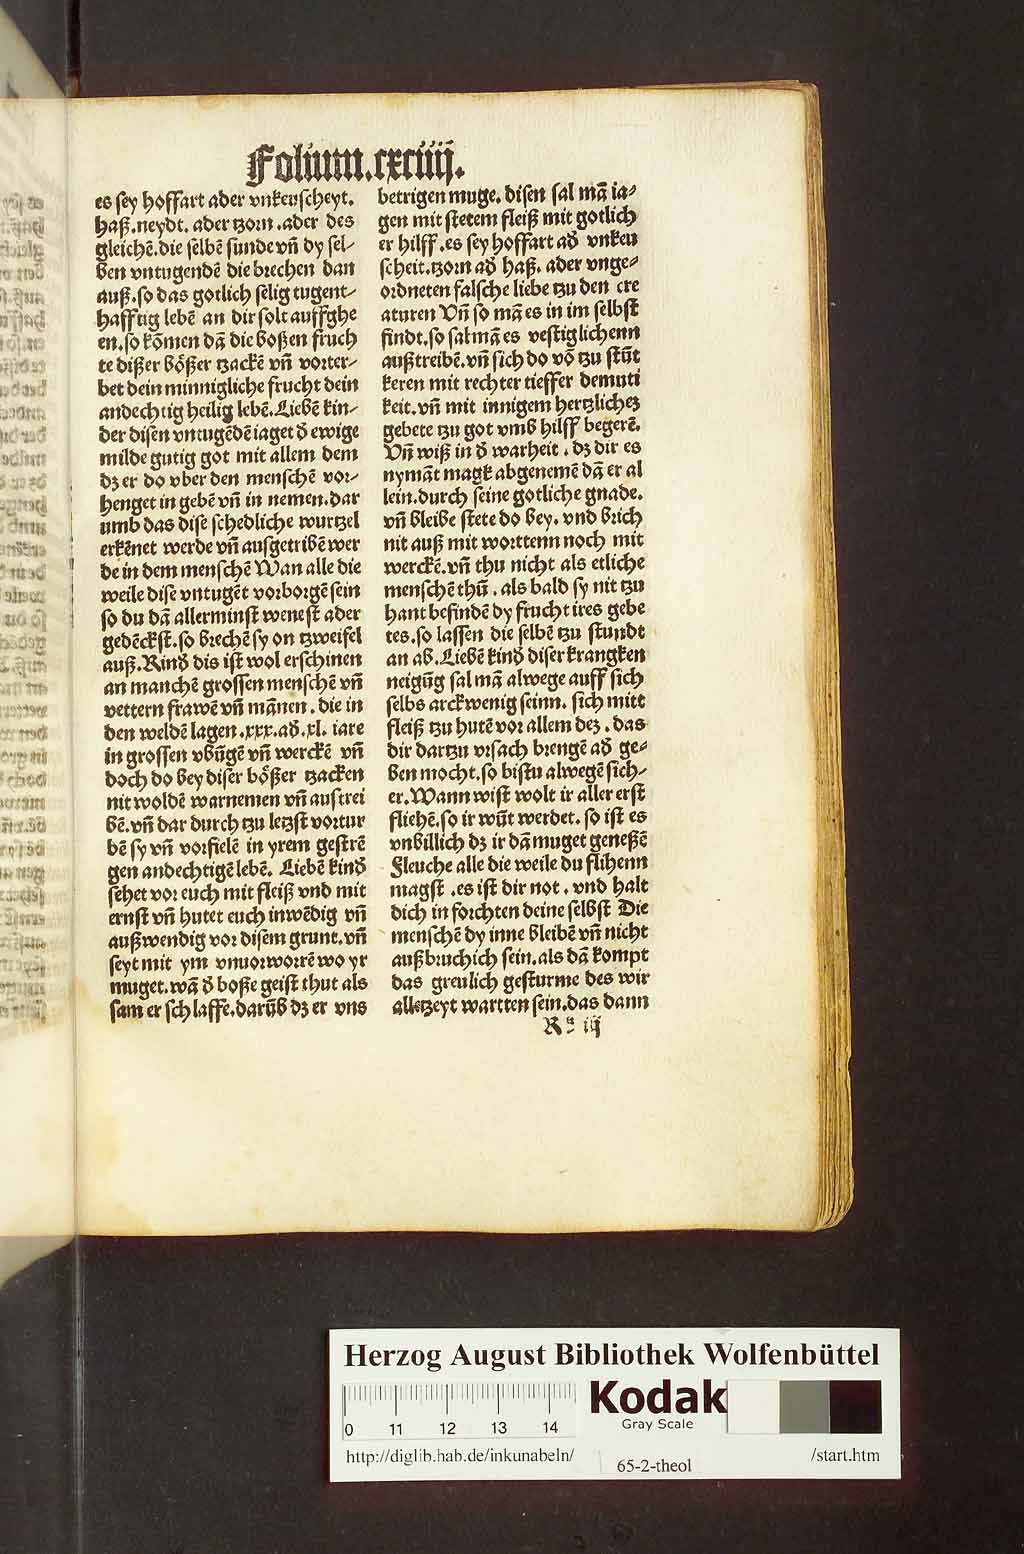 Folium.cxciiij.
es sey hoffart ader vnkeuscheyt.
haß.neydt. ader tzorn.ader des
gleichē.die selbē sunde vn̄ dy sel-
ben vntugendē die brechen dan
auß.so das gotlich selig tugent-
hafftig lebē an dir solt auffghe
en.so kōmen dā die boßen fruch
te dißer bößer tzackē vn̄ vorter-
bet dein minnigliche frucht dein
andechtig heilig lebē.Liebē kin-
der disen vntugēdē iaget d̕ ewige
milde gutig got mit allem dem
dz er do vber den menschē vor-
henget in gebē vn̄ in nemen.dar
umb das dise schedliche wurtzel
erkēnet werde vn̄ ausgetribē wer
de in dem menschē Wan alle die
weile dise vntugēt vorborgē sein
so du dā allerminst wenest ader
gedēckst.so brechē sy on tzweifel
auß.Kind̕ dis ist wol erschinen
an manchē grossen menschē vn̄
vettern frawē vn̄ mānen.die in
den weldē lagen.xxx.ad̕.xl. iare
in grossen vbūgē vn̄ werckē vn̄
doch do bey diser bößer tzacken
nit woldē warnemen vn̄ austrei
bē.vn̄ dar durch tzu letzst vortur
bē sy vn̄ vorfielē in yrem gestrē
gen andechtigē lebē. Liebē kind̕
sehet vor euch mit fleiß vnd mit
ernst vn̄ hutet euch inwēdig vn̄
außwendig vor disem grunt.vn̄
seyt mit ym vnuorworrē wo yr
muget.wā d̕ boße geist thut als
sam er schlaffe.darūb dz er vns
betrigen muge. disen sal mā ia-
gen mit stetem fleiß mit gotlich
er hilff.es sey hoffart ad̕ vnkeu
scheit.tzorn ad̕ haß. ader vnge-
ordneten falsche liebe tzu den cre
aturen Vn̄ so mā es in im selbst
findt.so sal mā es vestiglichenn
außtreibē.vn̄ sich do vō tzu stūt
keren mit rechter tieffer demuti
keit.vn̄ mit innigem hertzlichez
gebete tzu got vmb hilff begerē.
Vn̄ wiß in d̕ warheit. dz dir es
nymāt magk abgenemē dā er al
lein.durch seine gotliche gnade.
vn̄ bleibe stete do bey. vnd brich
nit auß mit worttenn noch mit
werckē.vn̄ thu nicht als etliche
menschē thū. als bald sy nit tzu
hant befindē dy frucht ires gebe
tes.so lassen die selbē tzu stundt
an ab.Liebē kind̕ diser krangken
neigūg sal mā alwege auff sich
selbs arckwenig seinn. sich mitt
fleiß tzu hutē vor allem dez. das
dir dartzu vrsach brengē ad̕ ge-
ben mocht.so bistu alwegē sich-
er.Wann wist wolt ir aller erst
fliehē.so ir wūt werdet. so ist es
vnbillich dz ir dā muget geneßē
Fleuche alle die weile du flihenn
magst .es ist dir not. vnd halt
dich in forchten deine selbst Die
menschē dy inne bleibē vn̄ nicht
außbruchich sein.als dā kompt
das greulich gesturme des wir
alletzeyt wartten sein.das dann
iij
Herzog August Bibliothek Wolfenbüttel
0 11 12 13 14
Kodak
Gray Scale
http://diglib.hab.de/inkunabeln/
65-2-theol
/start.htm